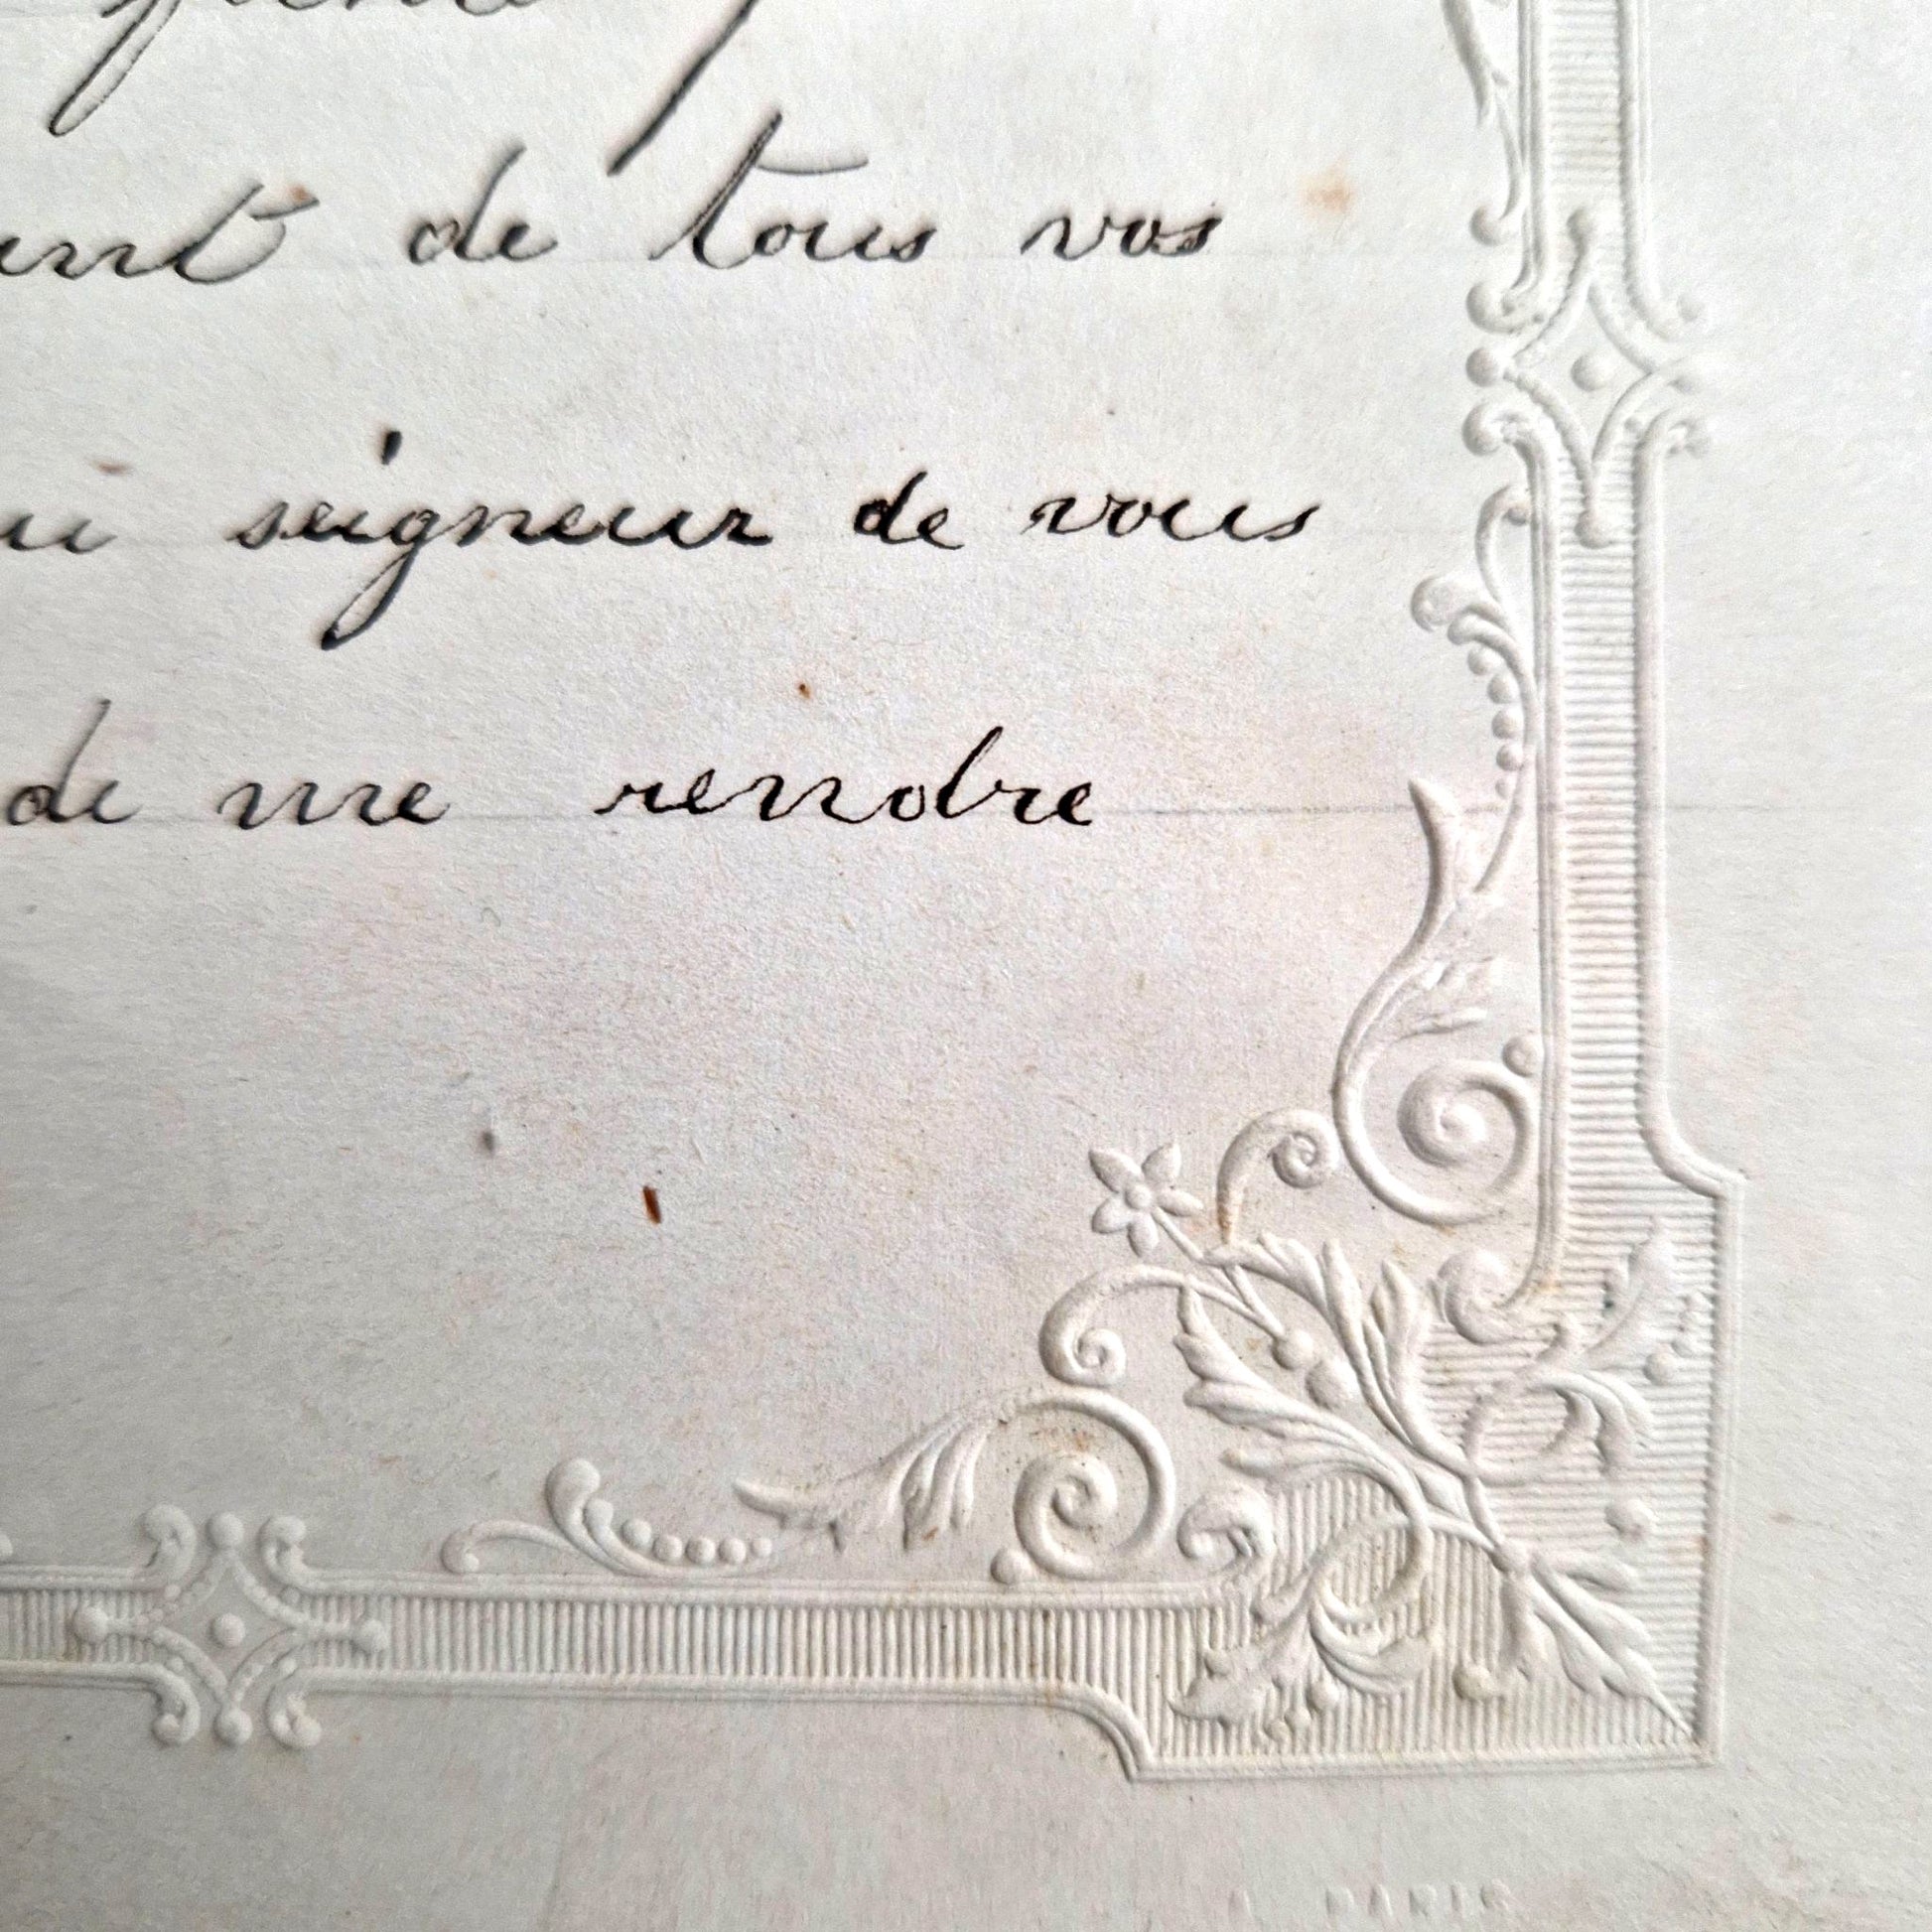 de tous vos
seigneur de vous
de me rendre
A PARIS